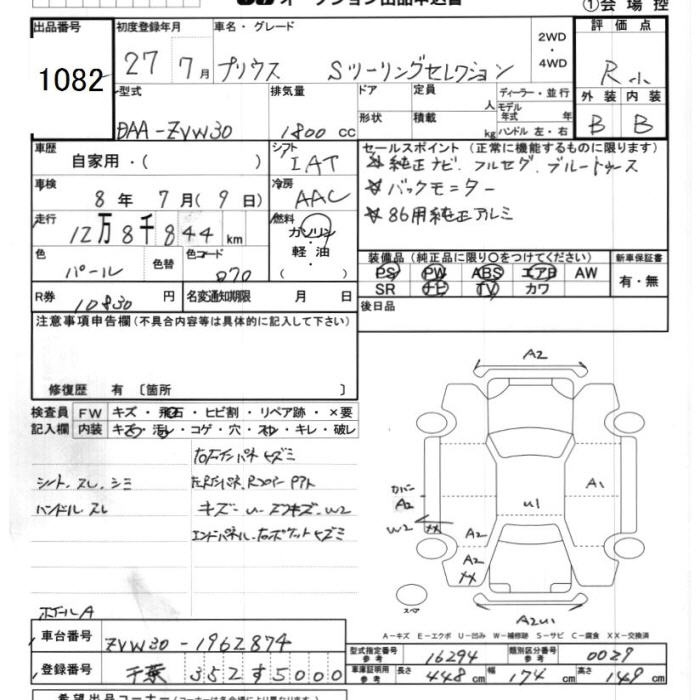 オークション出品申込書
①会場控
出品番号 1082
初度登録年月 27年 7月
車名・グレード プリウス Sツーリングセレクション
2WD・4WD
評価点 R小
外装 B 内装 B
型式 DAA-ZVW30
排気量 1800 cc
ドア 形状
定員 人 積載 kg
ディーラー・並行
モデル年式 年
ハンドル 左・右
車歴 自家用・( )
シフト IAT
車検 8年 7月(9日)
冷房 AAC
走行 12万8千844 km
燃料 ガソリン・軽油・( )
色 パール 色替 色コード 070
R券 10830 円 名変通知期限 月 日
セールスポイント(正常に機能するものに限ります)
☆純正ナビ、フルセグ、ブルートゥース
☆バックモニター
☆86用純正アルミ
装備品(純正品に限り○をつけてください) 新車保証書
PS PW ABS エアB AW
SR ナビ TV カワ
有・無
後日品
注意事項申告欄(不具合内容等は具体的に記入して下さい)
修復歴 有〔箇所 〕
検査員記入欄
FW キズ・飛石・ヒビ割・リペア跡・×要
内装 キズ・汚レ・コゲ・穴・スレ・キレ・破レ
シート、スレ、シミ
ハンドル スレ
ホイールA
右Fインパネ ヒズミ
左RFインパネ、Rコアパー アト
キズ-U-エクキズ-W2
エンドパネル・右ポケット ヒズミ
A2
カバー A2
W2 XX
A2
A2 XX
U1
A1
スペア
A2U1
A-キズ E-エクボ U-凹み W-補修跡 S-サビ C-腐食 XX-交換済
車台番号 ZVW30-1962874
登録番号 千葉 352 す 5000
型式指定番号 参考 16294
類別区分番号 参考 0029
車庫証明用 参考 長さ 448 cm 幅 174 cm 高さ 149 cm
希望出品コーナー